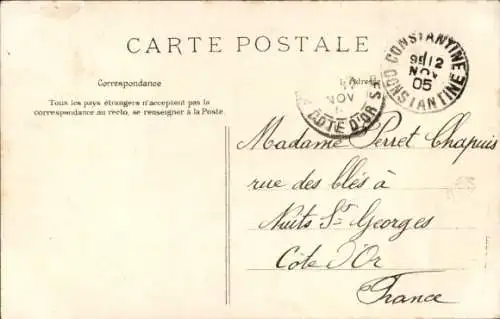 CARTE POSTALE
Correspondance
Tous les pays étrangers n'acceptent pas la
correspondance au recto, se renseigner à la Poste.
Adresse
CONSTANTINE
12
NOV
05
CONSTANTINE
NOV
COTE D'OR
Madame Perret Chapuis
rue des blés à
Nuits St Georges
Côte d'Or
France